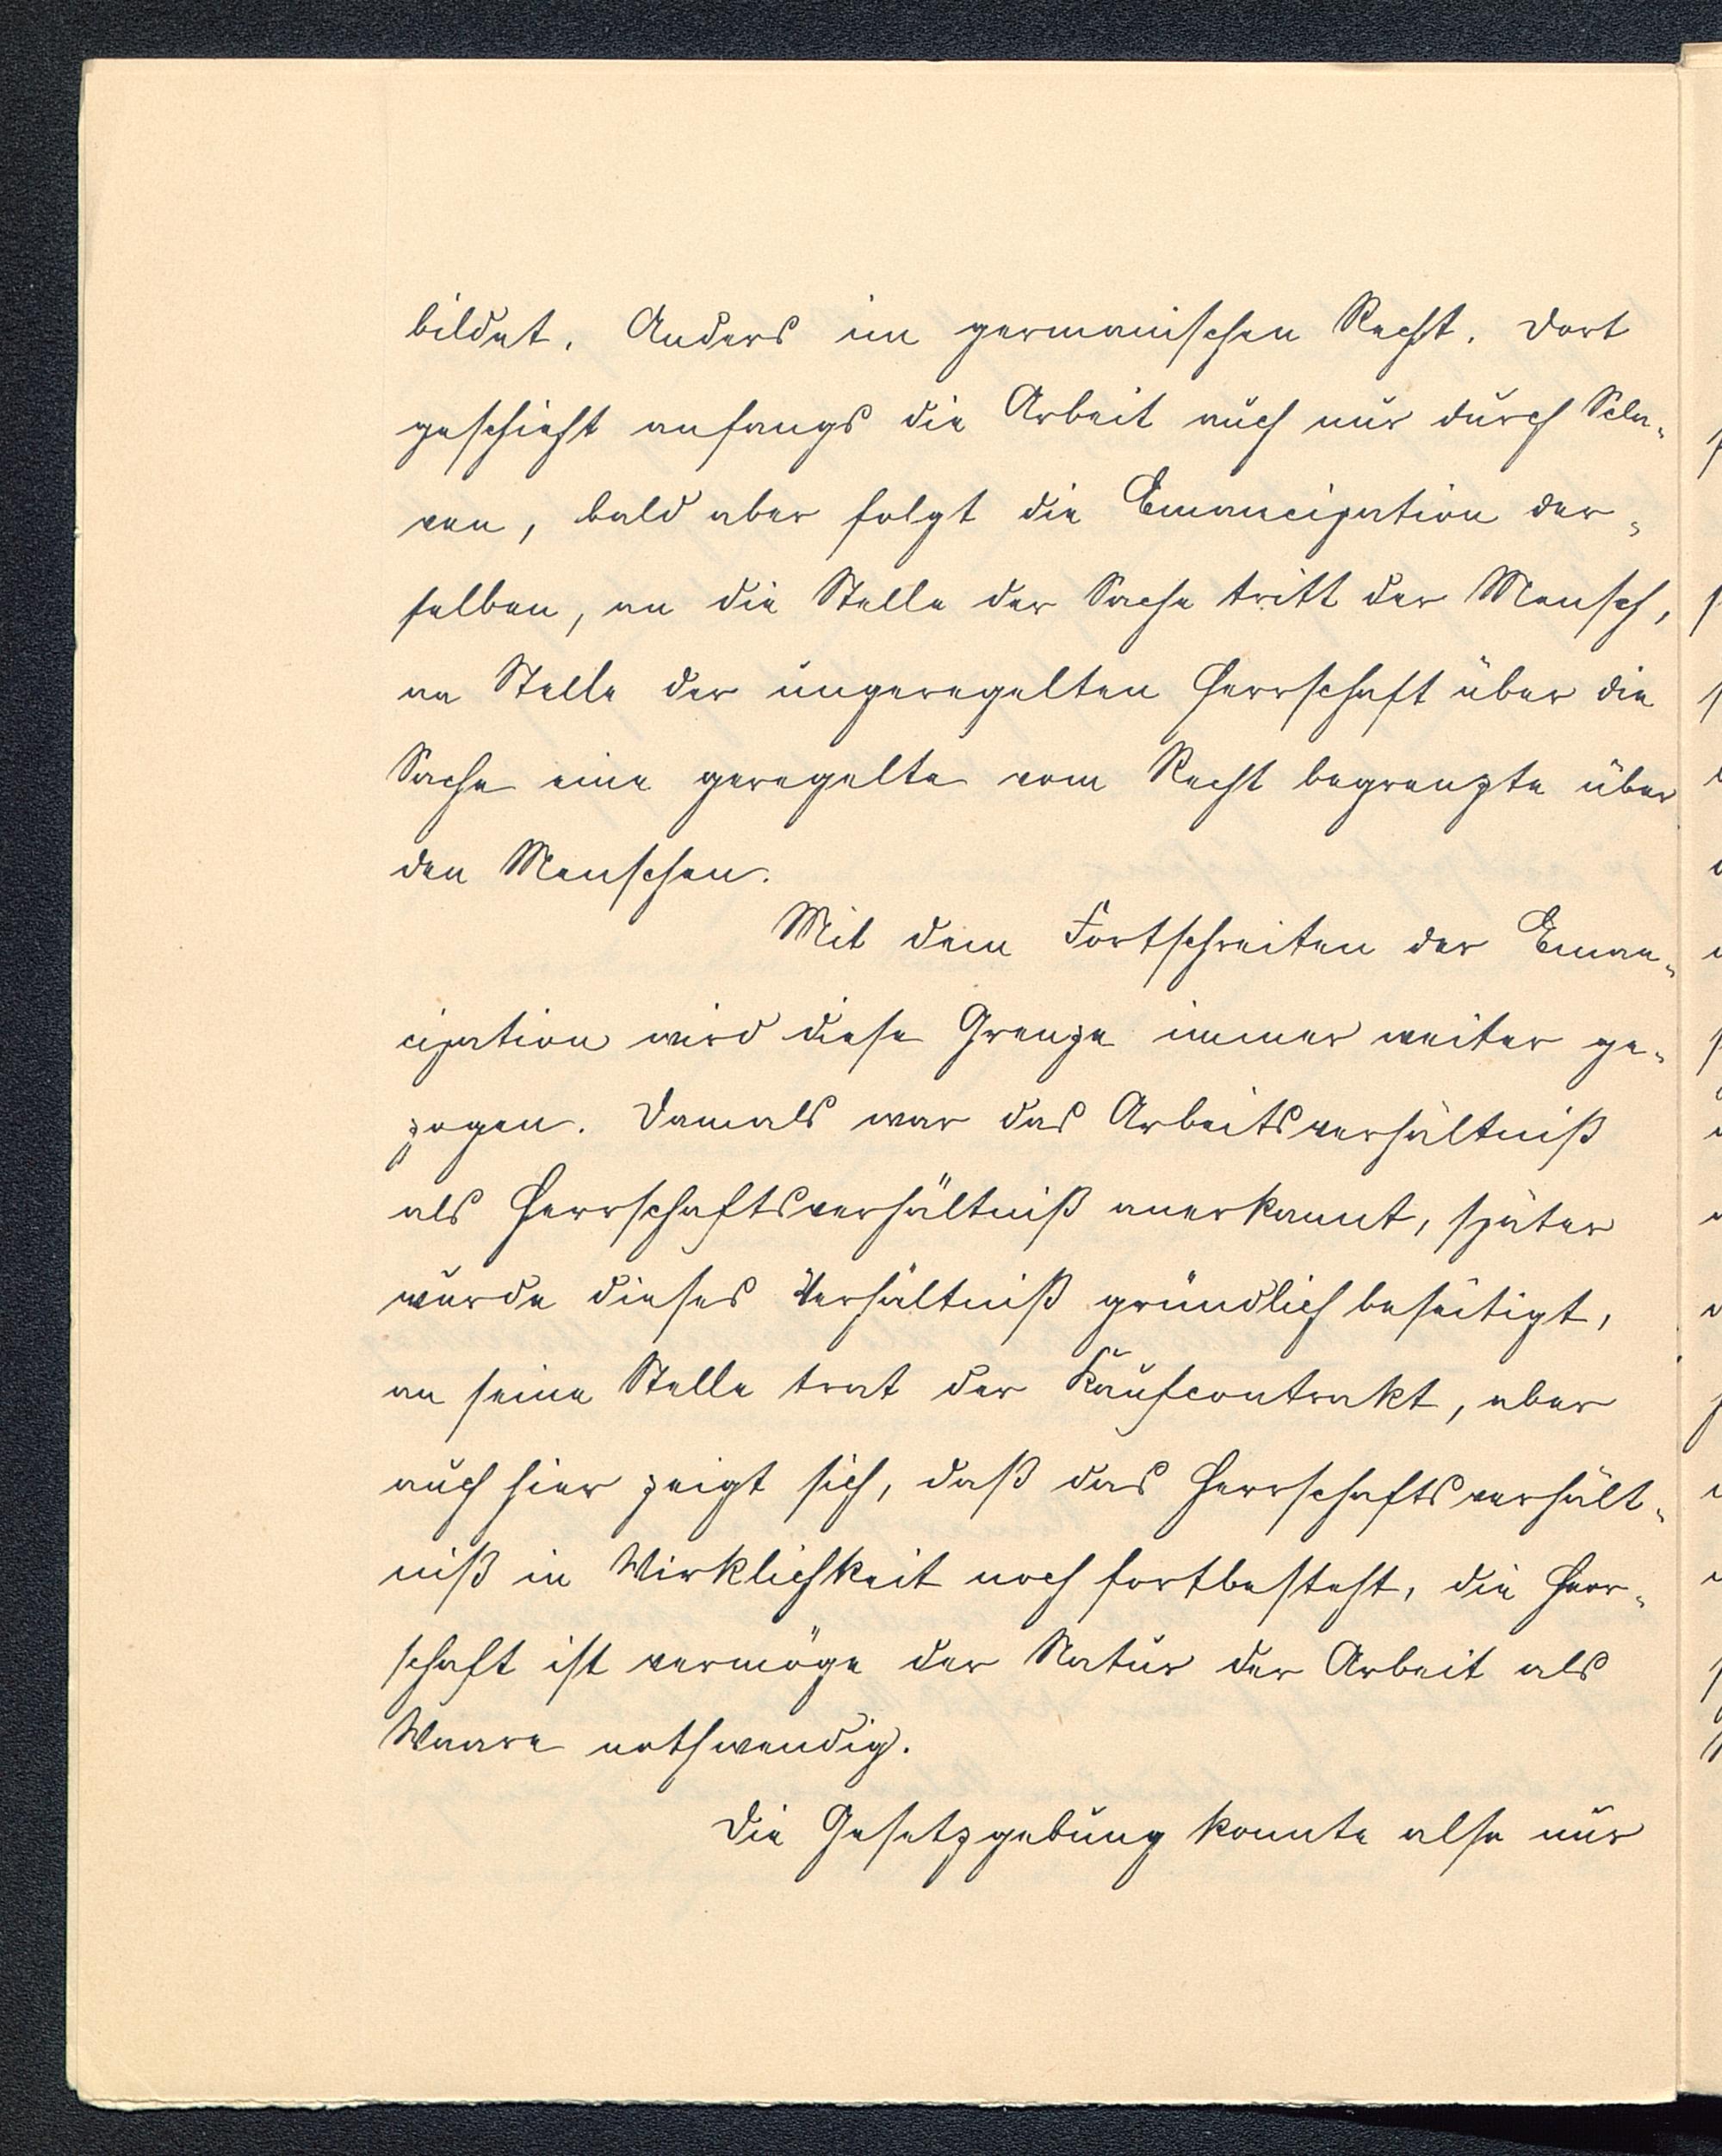 bildet. Anders im germanischen Recht. Dort
geschieht anfangs die Arbeit auch nur durch Scla-
ven, bald aber folgt die Emancipation der-
selben, an die Stelle der Sache tritt der Mensch,
an Stelle der ungeregelten Herrschaft über die
Sache eine geregelte vom Recht begrenzte über
den Menschen.
Mit dem Fortschreiten der Eman-
cipation wird diese Grenze immer weiter ge-
zogen. Damals war das Arbeitsverhältniß
als Herrschaftsverhältniß anerkannt, später
wurde dieses Verhältniß gründlich beseitigt,
an seine Stelle trat der Kaufcontrakt, aber
auch hier zeigt sich, daß das Herrschaftsverhält-
niß in Wirklichkeit noch fortbesteht, die Herr-
schaft ist vermöge der Natur der Arbeit als
Waare nothwendig.
Die Gesetzgebung konnte also nur